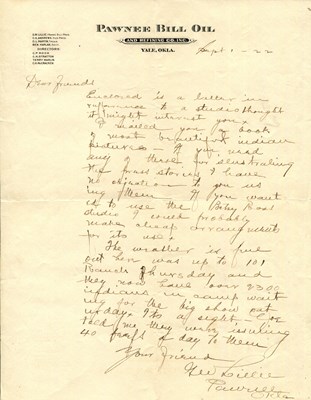 PAWNEE BILL OIL
AND REFINING CO. INC.
YALE, OKLA.
DIRECTORS
Sept 1 - 22
Dear Friends
Enclosed is a letter in
reference to a studio thought
it might interest you.
I mailed you a book
of most beautiful indian
pictures - If you need
any of these for illustrating
the stories I have
no objection to you us
ing them If you want
to use the
studio I could probably
make cheap arrangements
for its use.
The weather is fine
out here was up to 101
Ranch Thursday and
they now have over 2300
indians in camp wait
ing for the big show
Its a sight
told me they were issuing
40 beefs a day to them
Your Friend
Pawnee
Okla